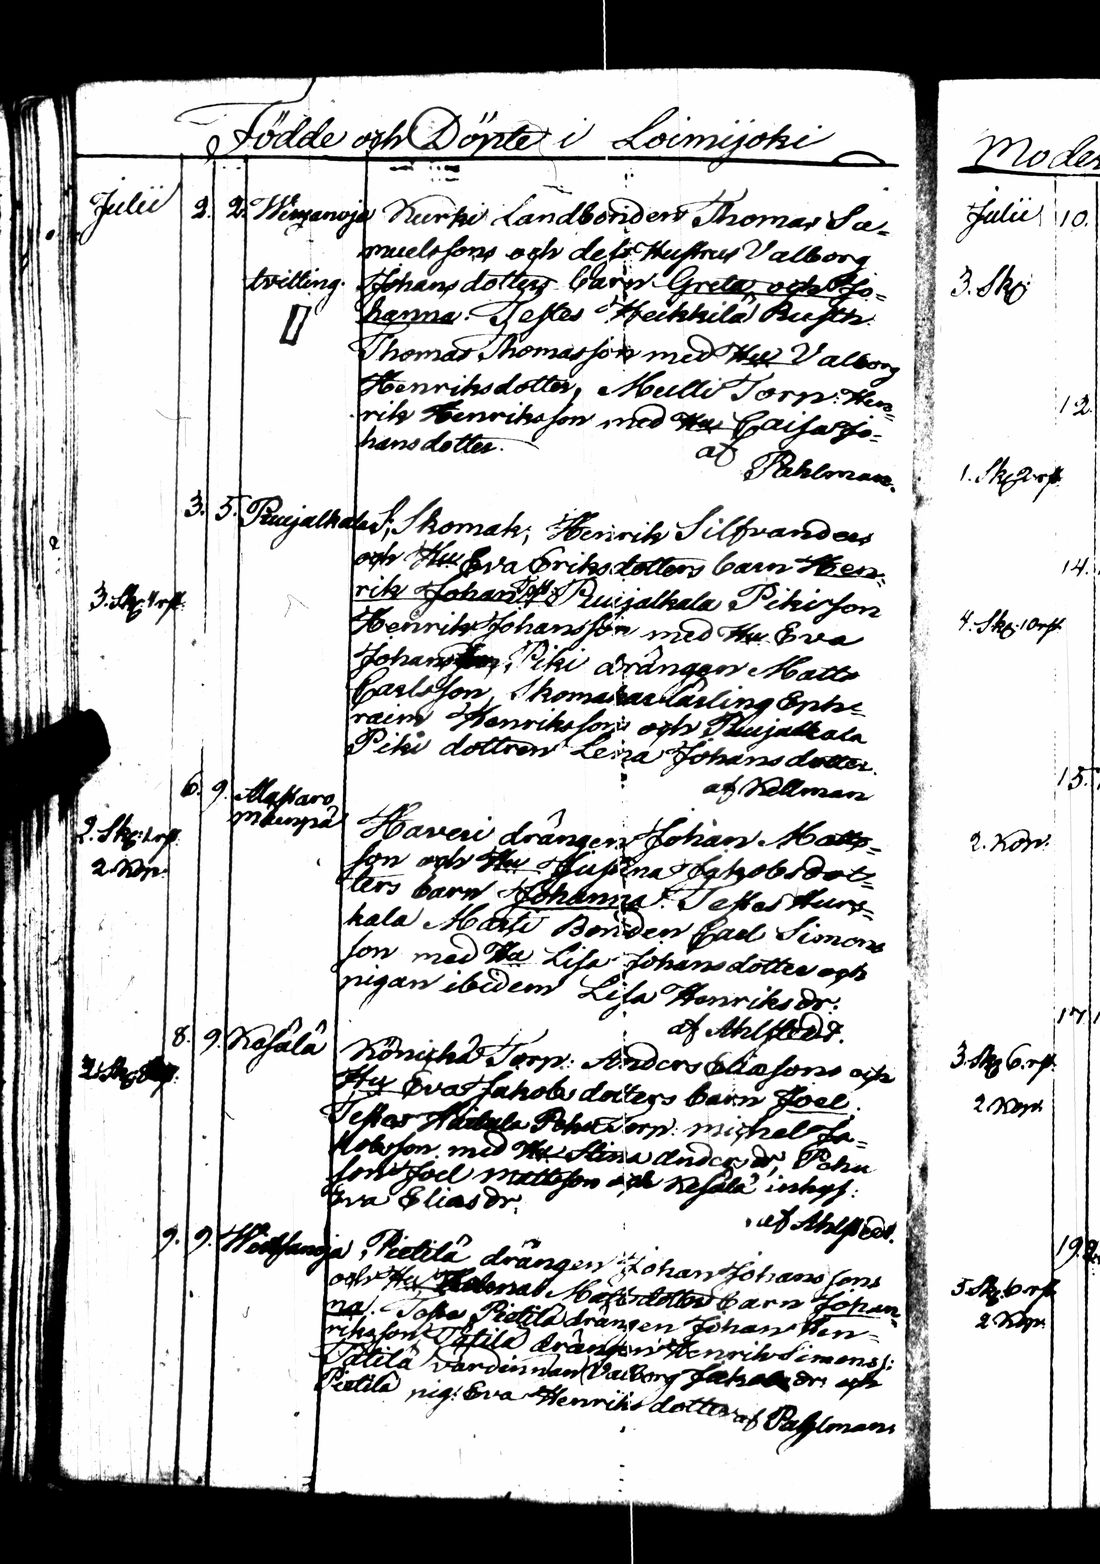 Födde och Döpte i Loimijoki
Julii 2. 2. Kurki Landbonden Thomas Sa-
muelssons och dess Hustrus Valborg
tvilling. Johansdotters barn Greta och Jo-
hanna. Testes Heikkilä Rusth.
Thomas Thomasson med Hu Valborg
Henriksdotter, Mulli Torp: Hen-
rik Henriksson med Hu Caisa Jo-
hansdotter.
af Pahlman.
3. 5. Puujalkala S, Skomak; Henrik Silfvanders
och Hu Eva Eriksdotters barn Hen-
3. Sk: 4 rst. rik Johan Test: Puujalkala Piki son
Henrik Johansson med Hu Eva
Johans Piki drängen Matts
Carlsson, Skomakarlärling Eph-
raim Henriksson och Puujalkala
Piki dottren Lena Johansdotter.
af Kellman
6. 9. Mattaro
Haveri drängen Johan Matts-
2. Kop. son och Hu Justina Jakobsdot-
ters barn Johanna. Testes Hur-
kala Matti Bonden Carl Simons
son med Hu Lisa Johansdotter och
pigan ibidem Lisa Henriksdr.
af Ahlstedt.
8. 9. Kesälä Torp: Anders Eliasons och
Hu Eva Jakobsdotters barn Joel.
Testes Torp: Michel Ja-
kobsson med Hu Stina Andersdr, Pehu
son Joel Mattsson och Kesälä inhys:
Eva Eliasdr.
af Ahlstedt.
9. 9. Pietilä drängen Johan Johanssons
och Hu Mattsdotters barn Johan-
na. Testes Pietilä drängen Johan Hen-
riksson, drängen Henrik Simons:
värdinnan Valborg dr: och
Pietilä pig: Eva Henriksdotter
af Pahlman
Moder
Julii 10.
3. Sk:
12.
1. Sk: 2 rst.
14.
4. Sk: 10 rst.
15.
2. Kop:
17.
3. Sk: 6. rst.
2 Kop.
19.
5. Sk: 6 rst.
2 Kop.